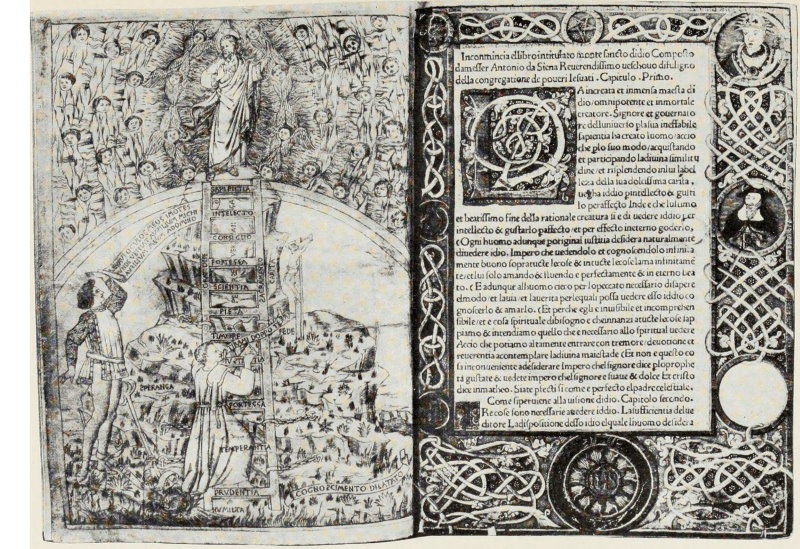 SAPIENTIA
INTELECTO
CONSIGLIO
FORTESSA
SCIENTIA
PIETA
TIMORE
FEDE
PERANÇA
TEMPERANTIA
PRUDENTIA
HUMILTA
COGNOSCIMENTO DILATAS
Incominincia ellibro intitulato monte sancto didio Composto
da messer Antonio da Siena Reuerendissimo uescouo difuligno
della congregatione de poueri Iesuati . Capitulo . Primo.
A increata et inmensa maesta di
dio/omnipotente et inmortale
creatore. Signore et gouernato
re dellunitierto plasua ineffabile
sapientia ha creato luomo /accio
che plo suo modo/acquistando
et participando ladiuina similitu
dine/et risplendendo inlui label
leza della sua dolcissima carita,
uegha iddio pintellecto & gusti
lo peraffecto Inde che lultimo
et beatissimo fine della rationale creatura si e di uedere iddio per
intellecto & gustarlo paffecto/et per effecto ineterno goderlo,
Ogni huomo adunque poriginal iustitia desidera naturalmente
diuedere idio. Impero che uedendolo et cognoscendolo infini.a
mente buono sopratucte lecose & intucte lecose lama infinitamē
te/et lui solo amando & fluendo e perfectamente & in eterno bea
to. Et adunque alluomo cieco per lopeccato necessario disapere
elmodo et lauia et lauerita perlequali possa uedere esso iddio co
gnoscerlo & amarlo. Et perche egli e inuisibile et incomprehen
sibile/et e cosa spirituale dibisogno e chennanzi atucte lecose sap
piamo & intendiamo quello che necessario allo spiritual uedere
Accio che potiamo altamente entrare con tremore/deuotione et
reuerentia acontemplare ladiuina maiestade Et non e questo co
sa inconueniente adesiderare Impero chel signore dice plo prophe
ta gustate & uedete impero chel signore e suaue & dolce Et cristo
dice inmatheo. Siate pfecti si come e perfecto elpadre celestiale.
Come siperuene alla uisione didio. Capitolo secondo.
Re cose sono necessarie auedere iddio. La sufficientia delue
ditore La dispositione desso idio elquale liuomo desidera